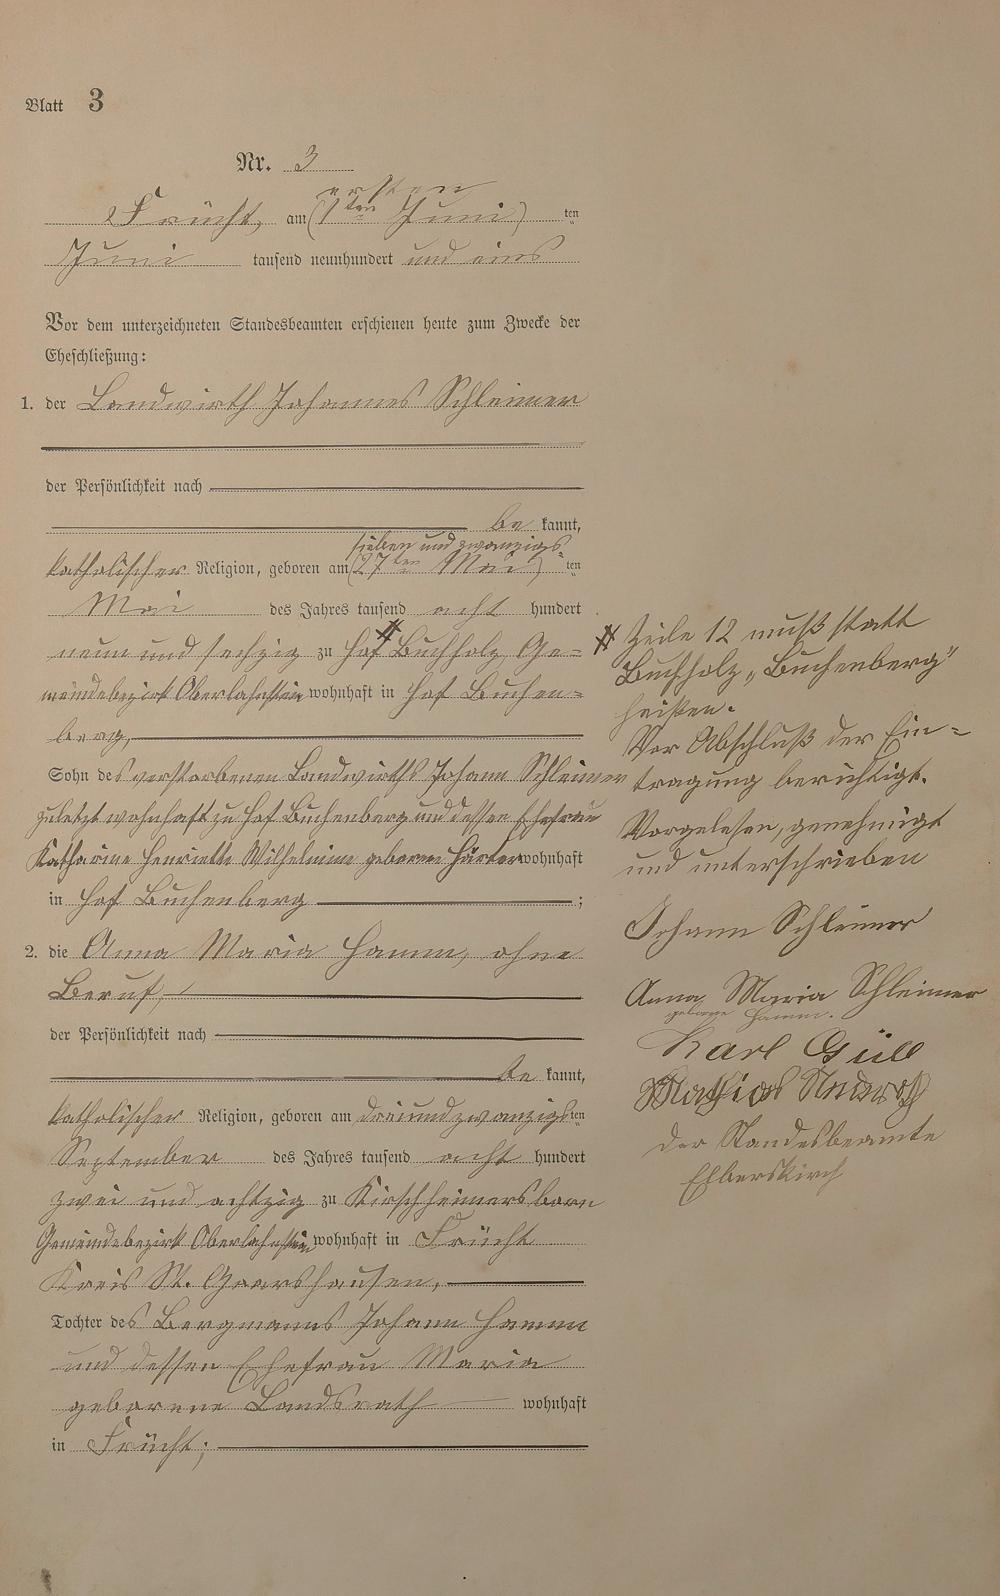 Blatt 3
Nr. 3
ersten
Frücht, am (1ten Juni) ten
Juni tausend neunhundert und eins
Vor dem unterzeichneten Standesbeamten erschienen heute zum Zwecke der
Eheschließung:
1. der Landwirth Johannes Schleimer
der Persönlichkeit nach
be kannt,
sieben und zwanzigs-
katholischer Religion, geboren am (27ten Mai) ten
Mai des Jahres tausend acht hundert
neun und sechzig zu Hof # Buchholz, Ge=
meindebezirk Oberlahnstein wohnhaft in Hof Buchen=
berg,
Sohn des verstorbenen Landwirths Johann Schleimer
zuletzt wohnhaft zu Hof Buchenberg und dessen Ehefrau
Katharine Henriette Wilhelmine geborene Hürter wohnhaft
in Hof Buchenberg ;
2. die Anna Maria Hamm, ohne
Beruf,
der Persönlichkeit nach
be kannt,
katholischer Religion, geboren am dreiundzwanzigsten
September des Jahres tausend acht hundert
zwei und achtzig zu Kirschheimersborn
Gemeindebezirk Oberlahnstein wohnhaft in Frücht
Kreis St. Goarshausen,
Tochter des Bergmanns Johann Hamm
und dessen Ehefrau Maria
geborene Landsrath wohnhaft
in Frücht;
# Zeile 12 muß statt
Buchholz „Buchenberg"
heißen.
Vor Abschluß der Ein=
tragung berichtigt.
Vorgelesen, genehmigt
und unterschrieben
Johann Schleimer
Anna Maria Schleimer
geborene Hamm.
Karl Güll
Mathias
Der Standesbeamte
Elberskirch